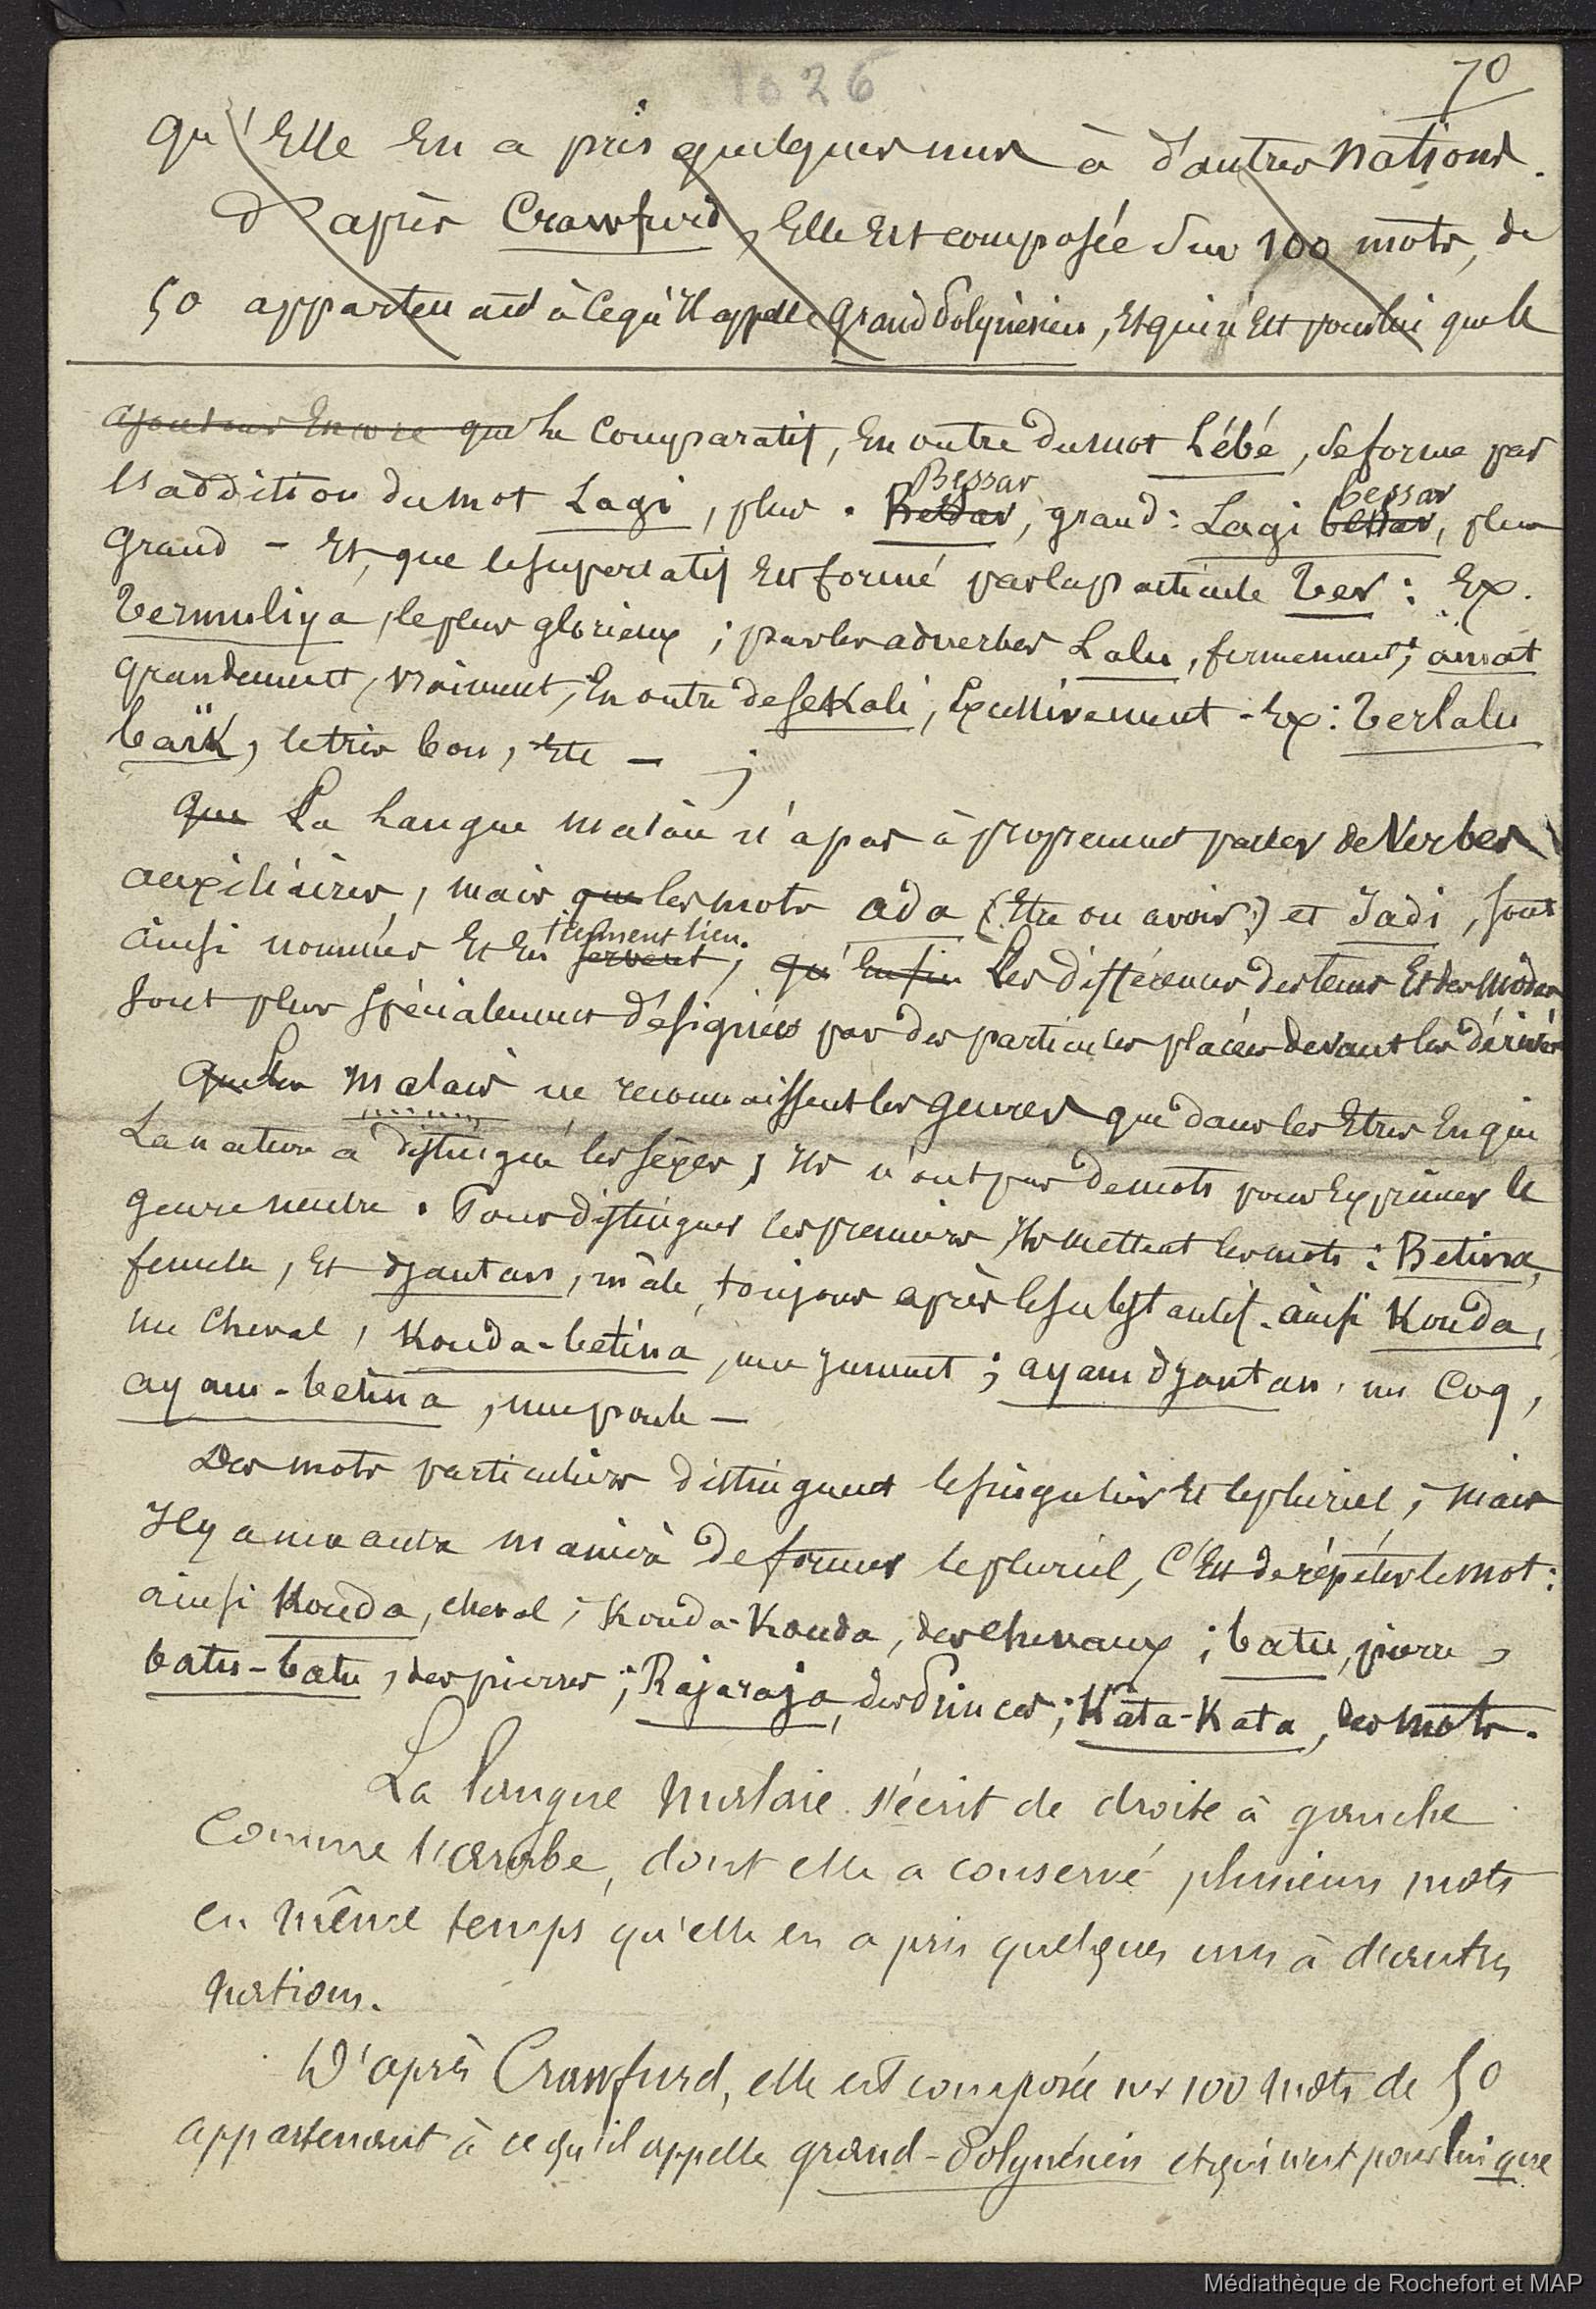 1026
70
qu'Elle En a pris quelques uns à d'autres Nations.
D'après Crawfurd, Elle Est composée sur 100 mots, de
50 appartenant à ce qu'Il appelle grand Polynésien, Et qui n'Est pour lui que le
ajoutons Encore que le Comparatif, En outre du mot Lébé, se forme par
Bessar bessar
l'addition du mot Lagi, plus. Bessar, grand: Lagi bessar, plus
grand - Et, que le superlatif Est formé par la particule Ter: Ex.
Termuliya, le plus glorieux; par les adverbes Lalu, fermement; amat
grandement, vraiment, En outre de seKali, Excessivement - Ex: Terlalu
baïk, le très bon, Etc - ;
que La Langue Malaie n'a pas à proprement parler de Verbes
auxiliaires, mais que les mots ada (Etre ou avoir) et Jadi, sont
tiennent lieu.
ainsi nommés Et En servent; qu'Enfin Les différences des tems Et des Modes
sont plus spécialement désignées par des particules placées devant les dérivés
que les Malais ne reconnaissent les genres que dans les Etres En qui
La nature a distingué les sexes; Ils n'ont pas de mots pour Exprimer le
genre neutre. Pour distinguer les premiers, Ils mettent les mots: Betina,
femelle, Et djantan, mâle, toujours après le substantif. ainsi Kouda,
un Cheval, Kouda-betina, une jument; ayam djantan, un Coq,
ayam-betina, une poule -
Des mots particuliers distinguent le singulier Et le pluriel; mais
Il y a une autre manière de former le pluriel, C'Est de répéter le mot:
ainsi Kouda, cheval; Kouda-Kouda, des chevaux; batu, pierre,
batu-batu, des pierres; Rajaraja, des Princes; Kata-Kata, des mots.
La langue Malaie s'écrit de droite à gauche
Comme l'arabe, dont elle a conservé plusieurs mots
en même temps qu'elle en a pris quelques uns à d'autres
nations.
D'après Crawfurd, elle est composée sur 100 mots de 50
appartenant à ce qu'il appelle grand-Polynésien et qui n'est pour lui que
Médiathèque de Rochefort et MAP